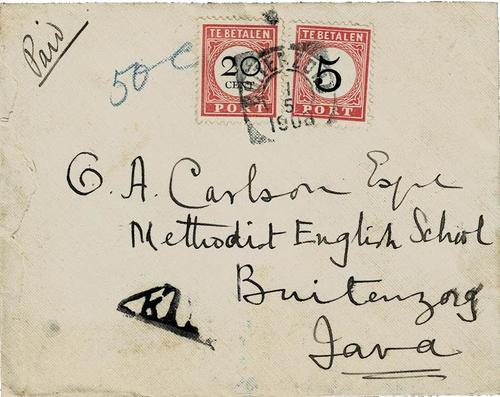 Paid
50 c
TE BETALEN
20
CENT
PORT
TE BETALEN
5
PORT
1
5
G. A. Carlson Esqre
Methodist English School
Buitenzorg
Java